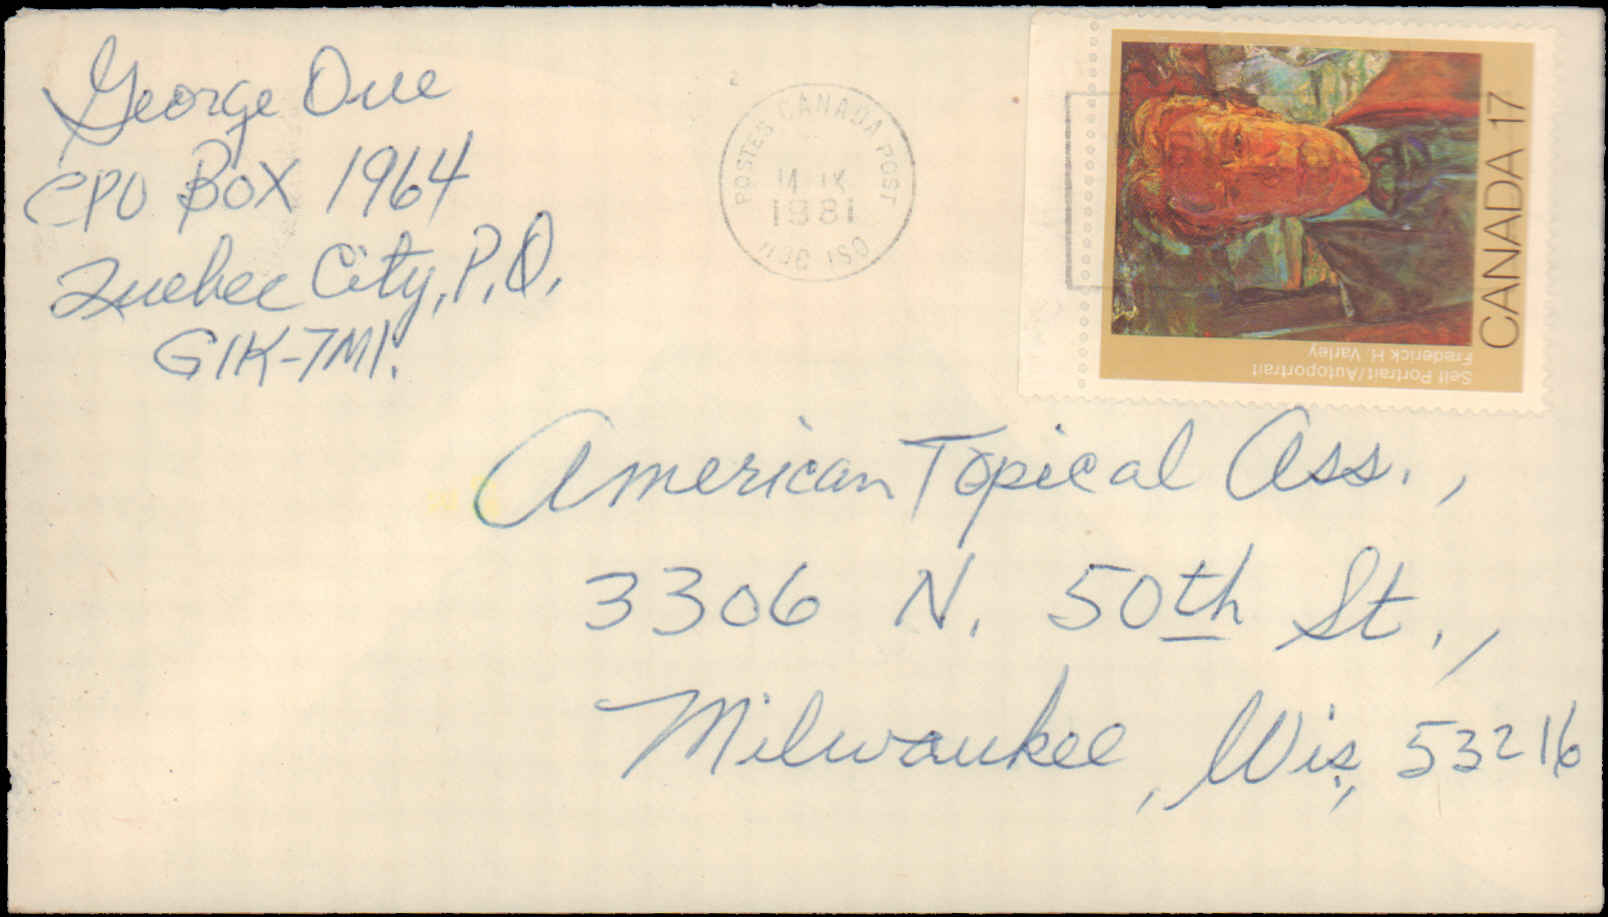 George Due
CPO Box 1964
Quebec City, P.Q.
G1K-7M1.
POSTES CANADA POST
1981
CANADA 17
Self Portrait/Autoportrait
Frederick H. Varley
American Topical Ass.,
3306 N. 50th St.,
Milwaukee, Wis, 53216